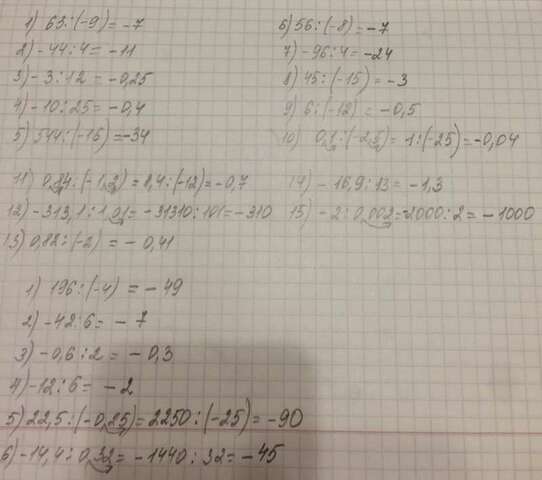 1) 63:(-9)= -7
2) -44:4= -11
3) -3:12 = -0,25
4) -10:25= -0,4
5) 544:(-16)=-34
6) 56:(-8)= -7
7) -96:4= -24
8) 45:(-15)= -3
9) 6:(-12) = -0,5
10) 0,1:(-2,5)= 1:(-25)= -0,04
11) 0,84:(-1,2)= 8,4:(-12)= -0,7
12) -313,1:1,01= -31310:101= -310
13) 0,82:(-2) = -0,41
14) -16,9:13= -1,3
15) -2:0,002=-2000:2= -1000
1) 196:(-4) = -49
2) -42:6= -7
3) -0,6:2= -0,3
4) -12:6= -2
5) 22,5:(-0,25)= 2250:(-25)= -90
6) -14,4:0,32= -1440:32= -45